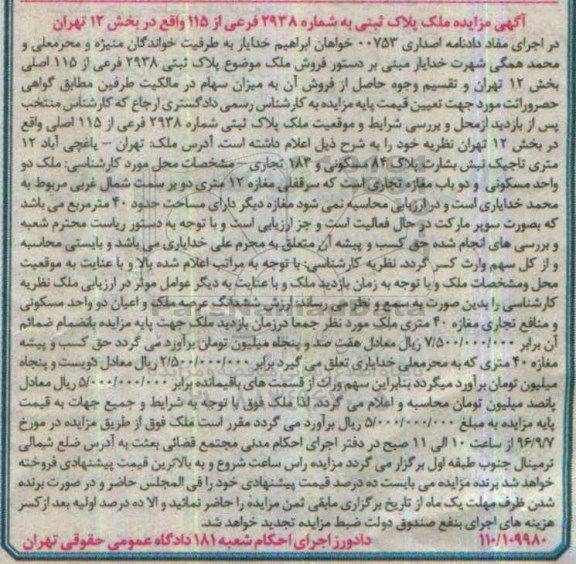 آگهی مزایده ملک پلاک ثبتی به شماره ۲۹۳۸ فرعی از ۱۱۵ واقع در بخش ۱۲ تهران
در اجرای مفاد دادنامه اصداری ۰۰۷۵۳ خواهان ابراهیم خدایار به طرفیت خواندگان منیژه و محرمعلی و
محمد همگی شهرت خدایار مبنی بر دستور فروش ملک موضوع پلاک ثبتی ۲۹۳۸ فرعی از ۱۱۵ اصلی
بخش ۱۲ تهران و تقسیم وجوه حاصل از فروش آن به میزان سهام در مالکیت طرفین مطابق گواهی
حصروراثت مورد جهت تعیین قیمت پایه مزایده به کارشناس رسمی دادگستری ارجاع که کارشناس منتخب
پس از بازدید ازمحل و بررسی شرایط و موقعیت ملک پلاک ثبتی شماره ۲۹۳۸ فرعی از ۱۱۵ اصلی واقع
در بخش ۱۲ تهران نظریه خود را به شرح ذیل اعلام داشته است. آدرس ملک: تهران – یاغچی آباد ۱۲
متری تاجیک نبش بشارت پلاک ۸۴ مسکونی و ۱۸۳ تجاری – مشخصات محل مورد کارشناسی: ملک دو
واحد مسکونی و دو باب مغازه تجاری است که سرقفلی مغازه ۱۲ متری دو بر سمت شمال غربی مربوط به
محمد خدایاری است و در ارزیابی محاسبه نمی شود مغازه دیگر دارای مساحت حدود ۴۰ مترمربع می باشد
که بصورت سوپر مارکت در حال فعالیت است و جز ارزیابی است و با توجه به دستور ریاست محترم شعبه
و بررسی های انجام شده حق کسب و پیشه آن متعلق به محرم علی خدایاری می باشد و بایستی محاسبه
و از کل سهم وارث کسر گردد. نظریه کارشناسی: با توجه به مراتب اعلام شده بالا و با عنایت به موقعیت
محل ومشخصات ملک و با توجه به زمان بازدید ملک و با عنایت به دیگر عوامل موثر در ارزیابی ملک نظریه
کارشناسی را بدین صورت به سمع و نظر می رساند: ارزش ششدانگ عرصه ملک و اعیان دو واحد مسکونی
و منافع تجاری مغازه ۴۰ متری ملک مورد نظر جمعا درزمان بازدید ملک جهت پایه مزایده بانضمام ضمائم
آن برابر ۷/۵۰۰/۰۰۰/۰۰۰ ریال معادل هفت صد و پنجاه میلیون تومان برآورد می گردد حق کسب و پیشه
مغازه ۴۰ متری که به محرمعلی خدایاری تعلق می گیرد برابر ۲/۵۰۰/۰۰۰/۰۰۰ ریال معادل دویست و پنجاه
میلیون تومان برآورد میگردد بنابراین سهم وراث از قسمت های باقیمانده برابر ۵/۰۰۰/۰۰۰/۰۰۰ ریال معادل
پانصد میلیون تومان محاسبه و اعلام می گردد لذا ملک فوق با توجه به شرایط و جمیع جهات به قیمت
پایه مزایده به مبلغ ۵/۰۰۰/۰۰۰/۰۰۰ ریال برآورد می گردد مقرر است ملک فوق از طریق مزایده در مورخ
۹۶/۹/۷ از ساعت ۱۰ الی ۱۱ صبح در دفتر اجرای احکام مدنی مجتمع قضائی بعثت به آدرس ضلع شمالی
ترمینال جنوب طبقه اول برگزار می گردد مزایده راس ساعت شروع و به بالاترین قیمت پیشنهادی فروخته
خواهد شد برنده مزایده می بایست ده درصد قیمت پیشنهادی خود را فی المجلس حاضر و در صورت برنده
شدن ظرف مهلت یک ماه از تاریخ برگزاری مابقی ثمن مزایده را حاضر نمائید و الا ده درصد اولیه بعد ازکسر
هزینه های اجرای بنفع صندوق دولت ضبط مزایده تجدید خواهد شد.
۱۱۰/۱۰۹۹۸۰ دادورز اجرای احکام شعبه ۱۸۱ دادگاه عمومی حقوقی تهران